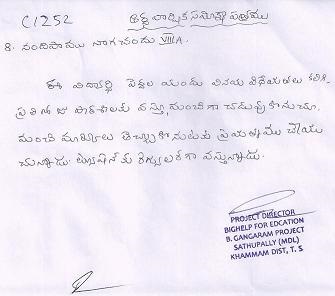 C1252
అర్థ వార్షిక సమీక్షా పత్రము
8. నందిపాము నాగచందు VIII A.
ఈ విద్యార్థి పెద్దల యందు వినయ విధేయతలు కలిగి.
ప్రతిరోజు పాఠశాలకు వస్తూ, మంచిగా చదువుకొనుచూ,
మంచి మార్కులు తెచ్చుకొనుటకు ప్రయత్నము చేయు
చున్నాడు. ట్యూషన్ కు రెగ్యులర్ గా వస్తున్నాడు.
PROJECT DIRECTOR
BIGHELP FOR EDCATION
B. GANGARAM PROJECT
SATHUPALLY (MDL)
KHAMMAM DIST, T. S